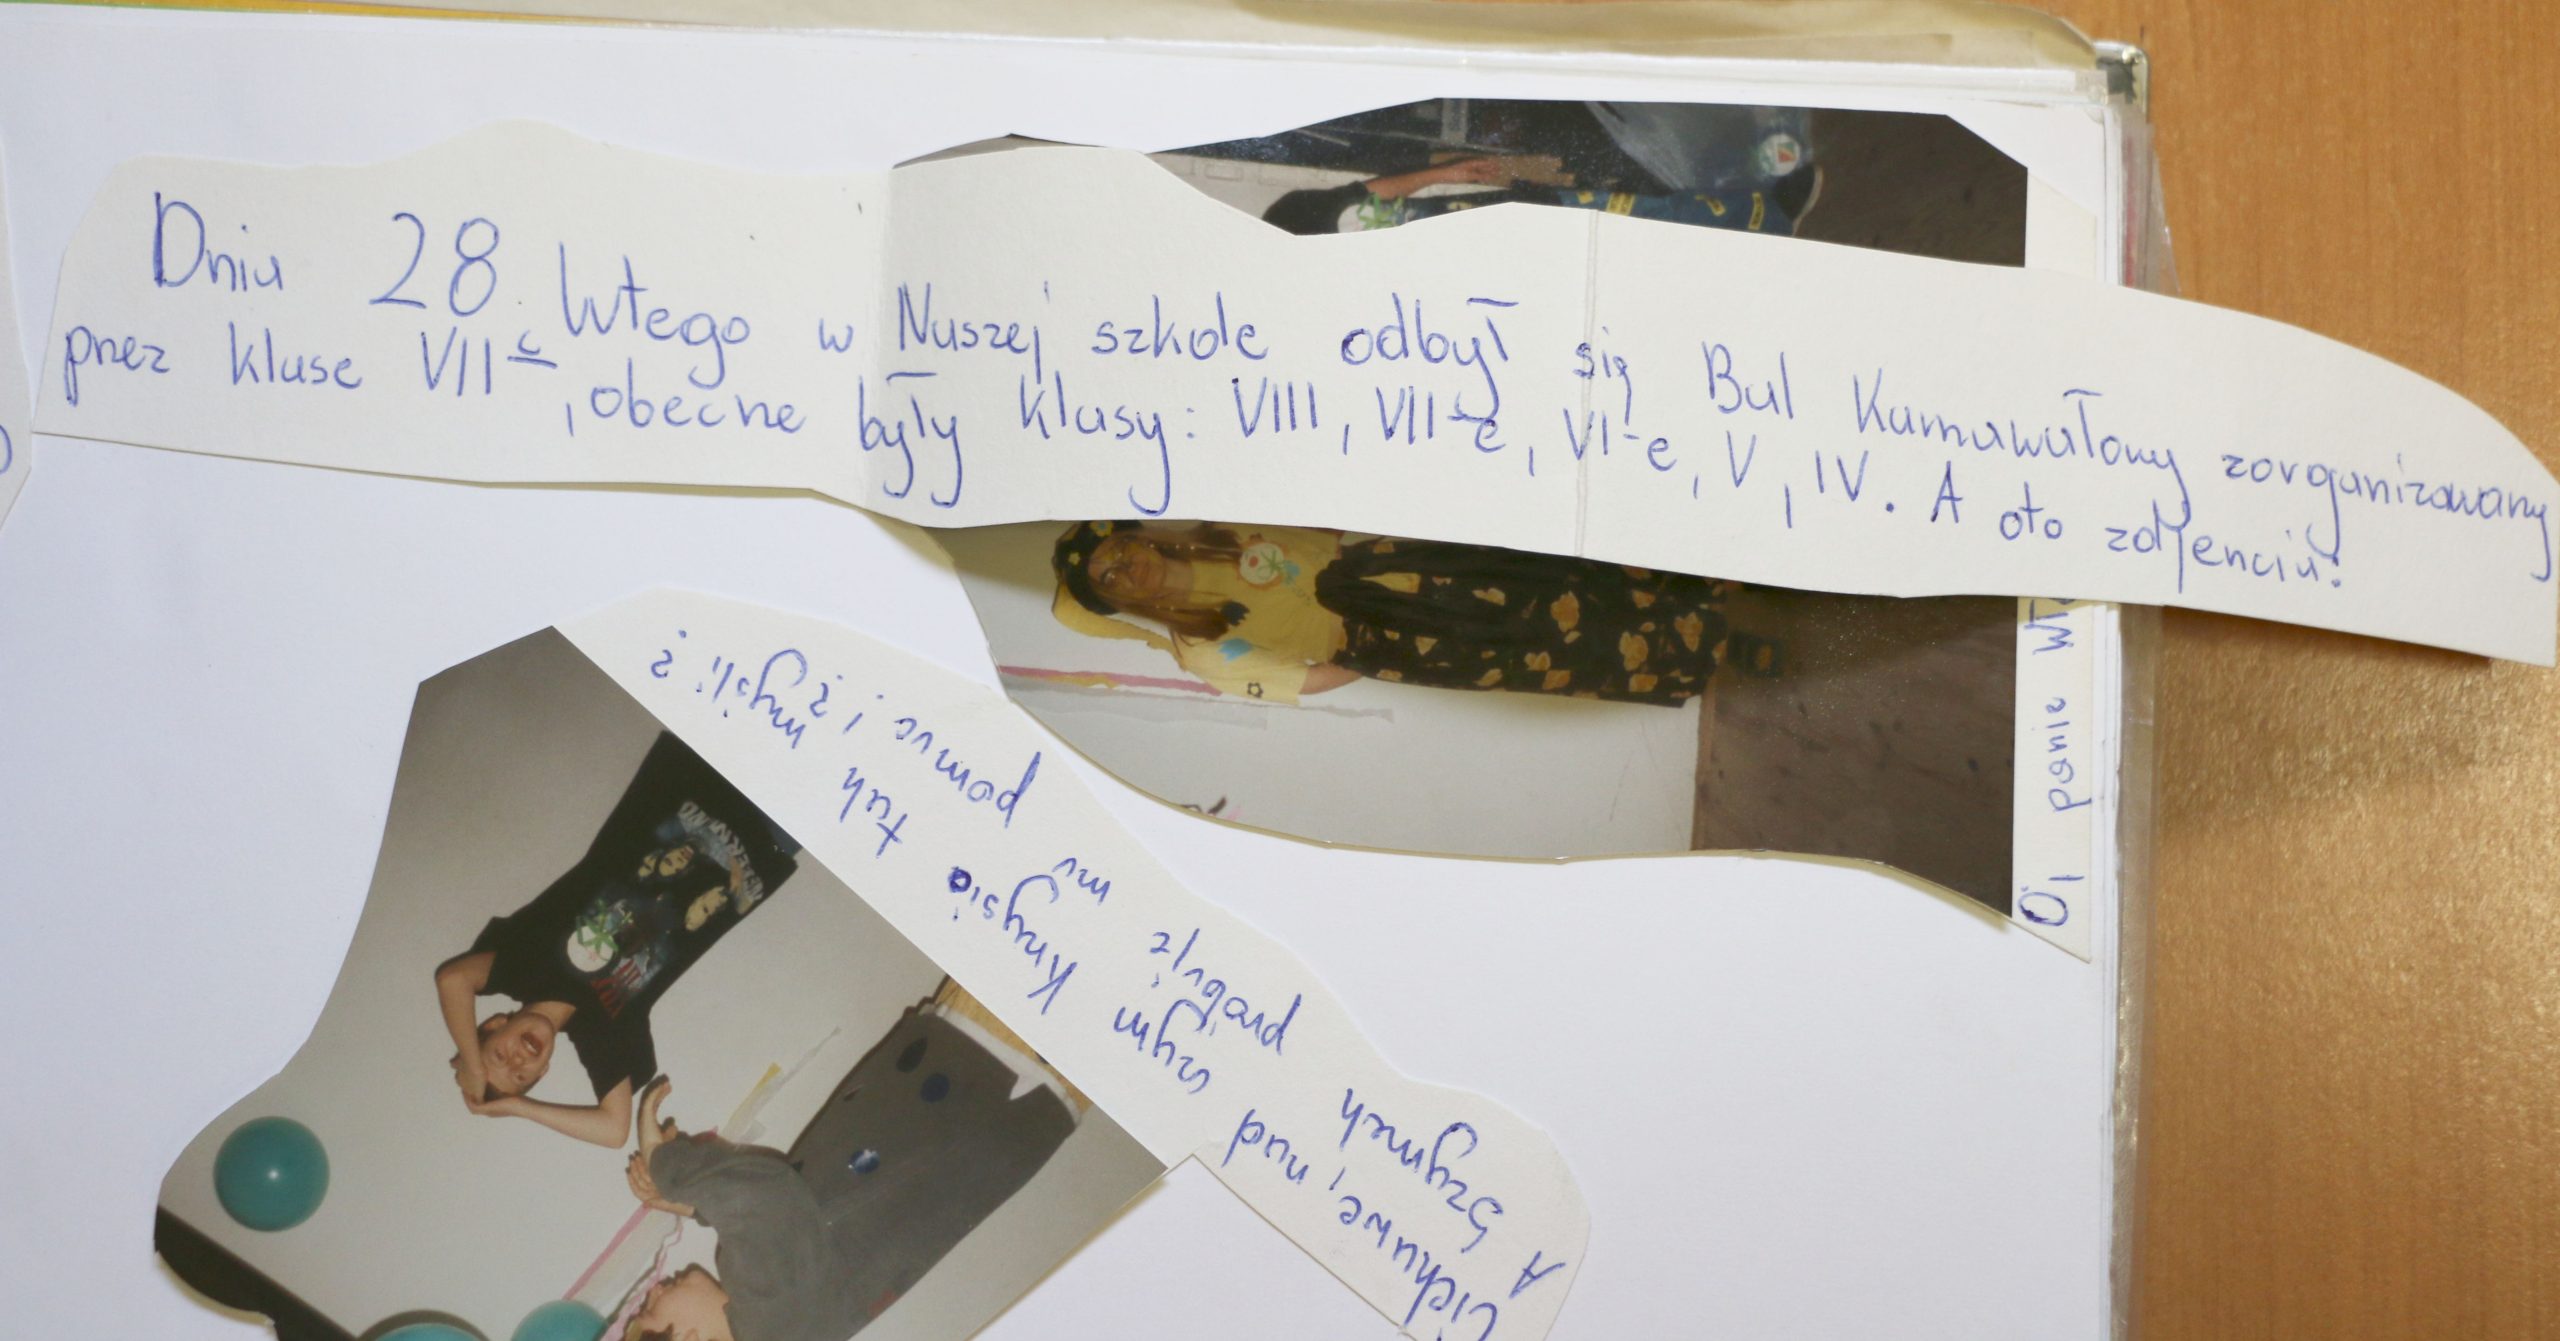 Dniu 28 lutego w Naszej szkole odbył się Bal Karnawałowy zorganizowany
przez klase VII c, obecne były klasy: VIII, VII-e, VI-e, V, IV. A oto zdjencia:
O, panie
Ciekawe, nad czym Krzysio tak myśli?
A Szymek próbuje mu pomuc, i?